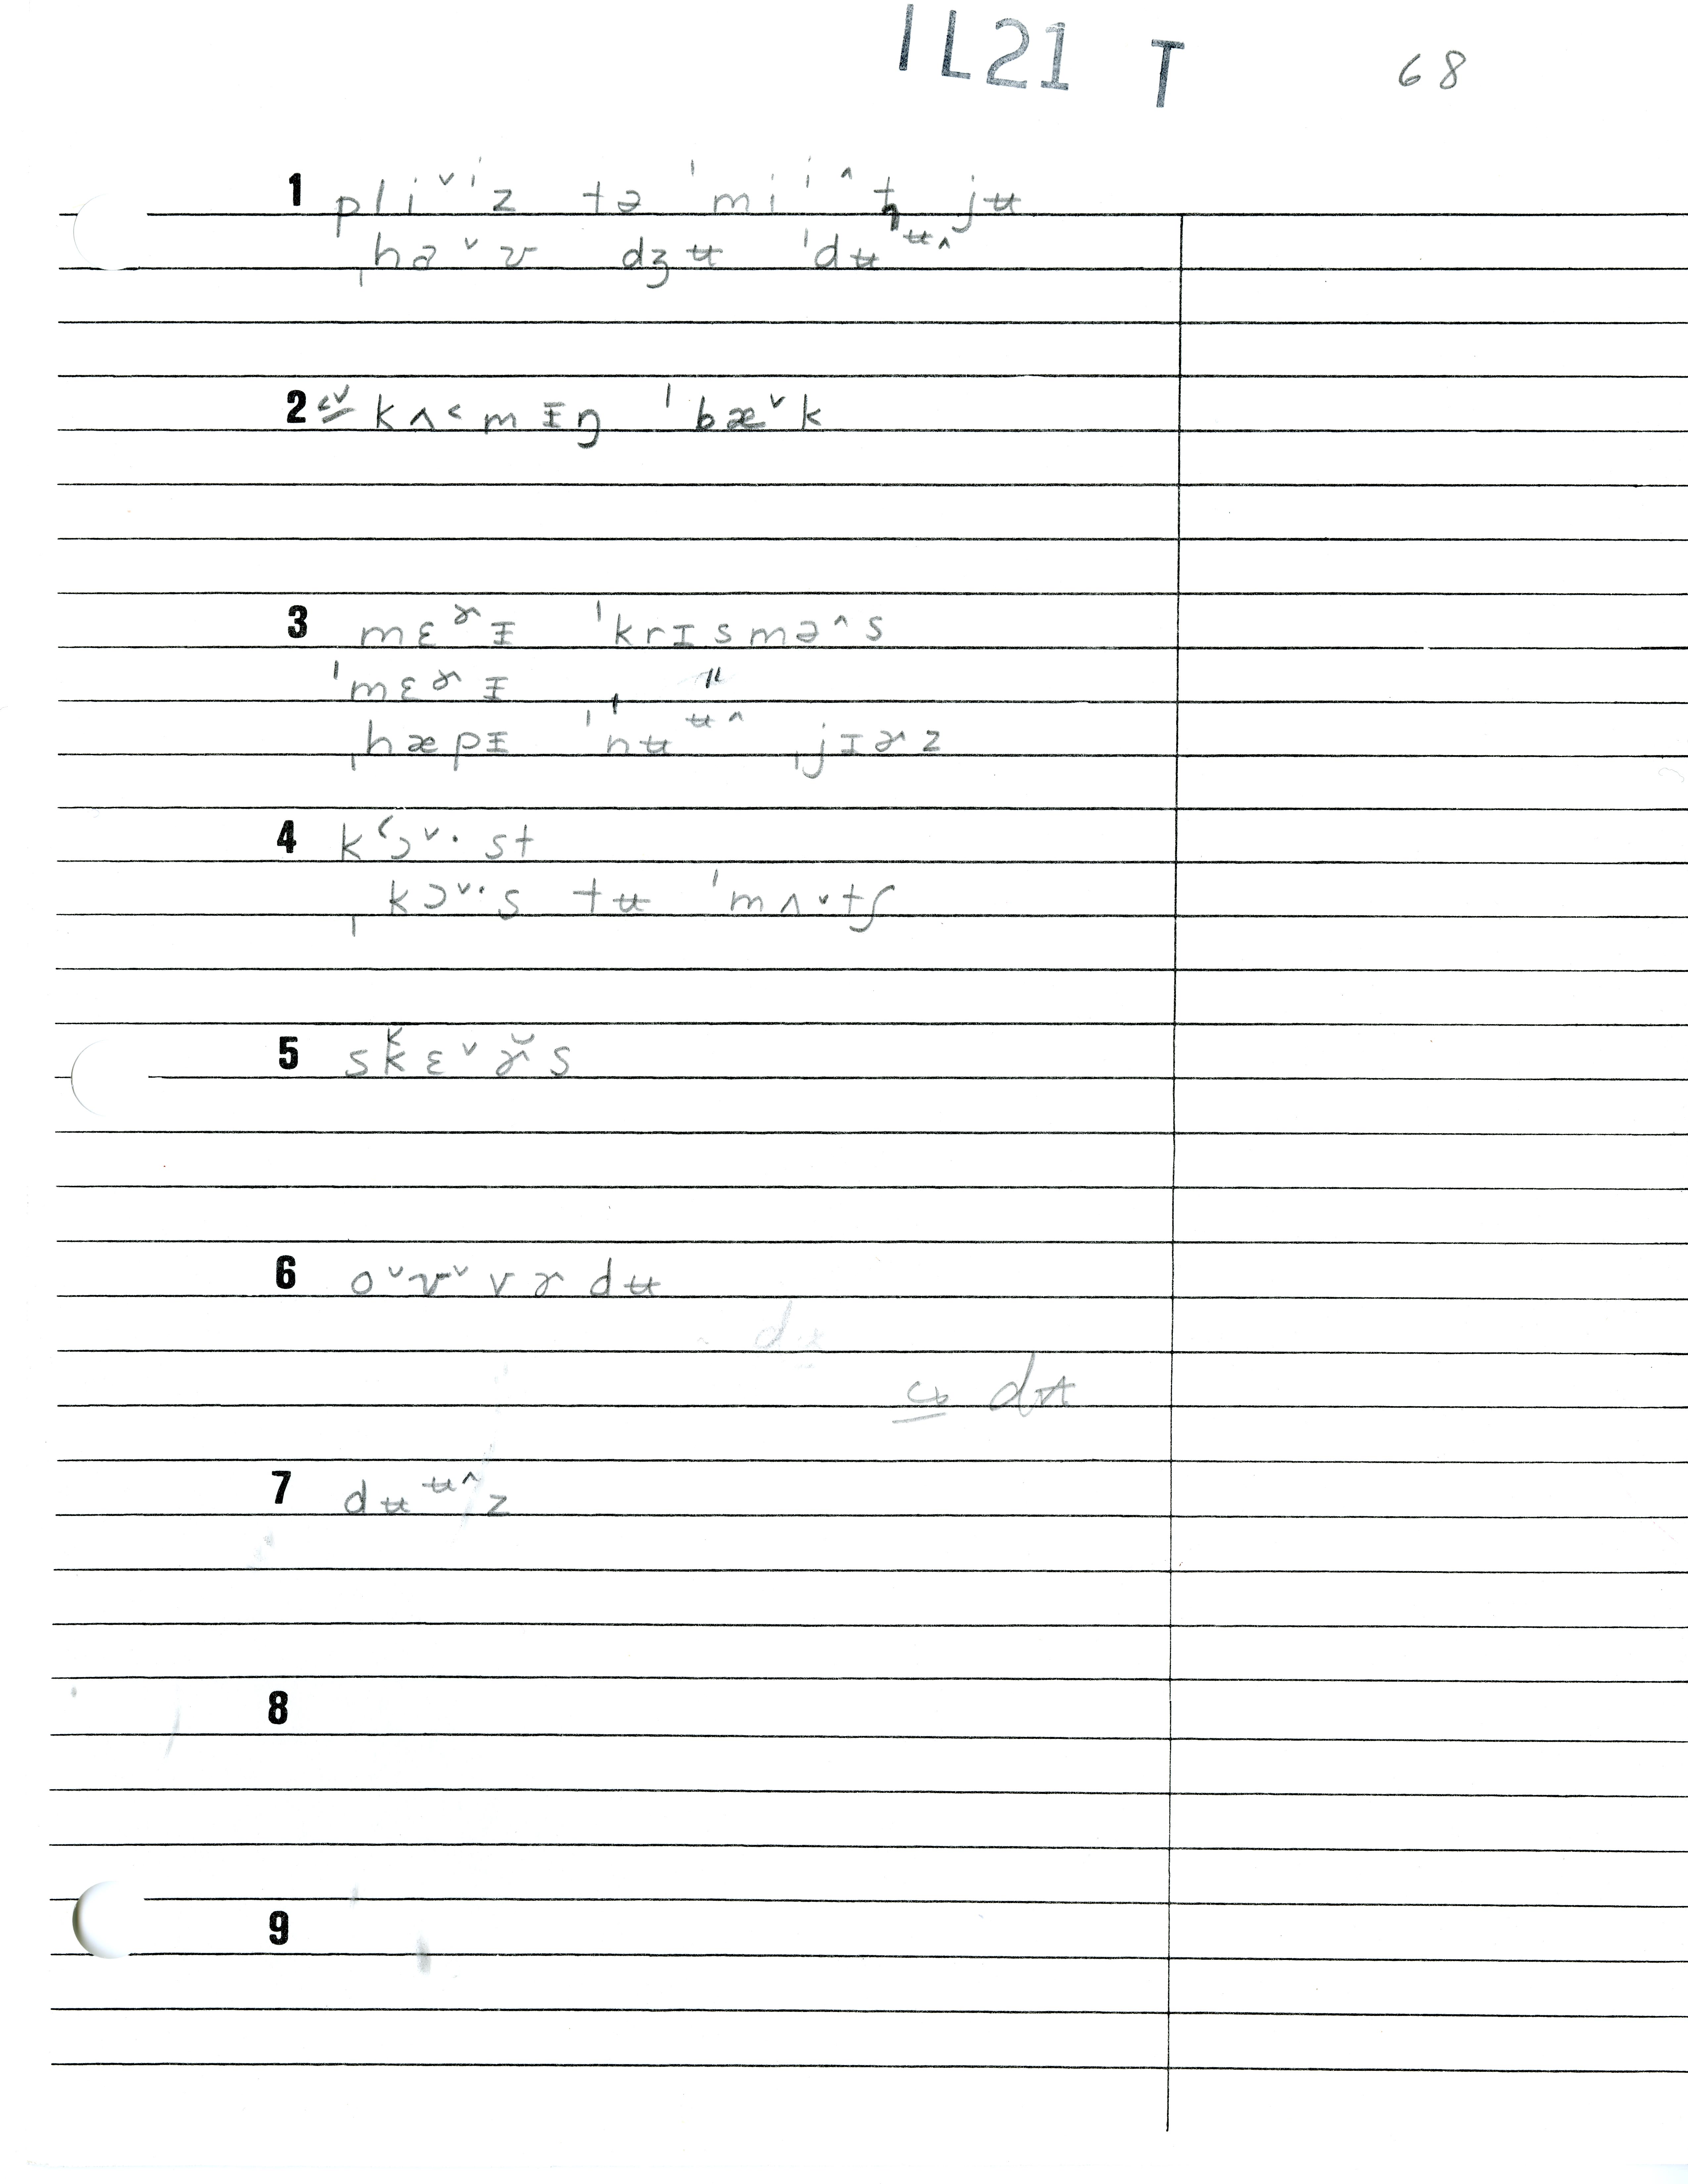 IL21 T 68
1 pli ᵛ ⁱ z tə ˈmi ⁱ ^ t jʉ
ˌha ᵛ ʊ dʒʉ ˈdʉ ᵾ ^
2 kʌ˂mɪ̵ŋ ˈbæ ᵛ k
3 mɛɚɪ̵ ˈkrɪsmə^s
ˈmɛɚɪ̵
ˌhæpɪ̵ ˈnʉ ᵾ ^ ˌjɪɚz
4 k˂ɔ ᵛ · st
ˌkɔ ᵛ · s tʉ ˈmʌ ᵛ tʃ
5 skɛ ᵛ ɚ̆s
6 o ᵛ ʊ ᵛ vɚ dʉ
cb dʉ
7 dʉ ᵾ ^ z
8
9